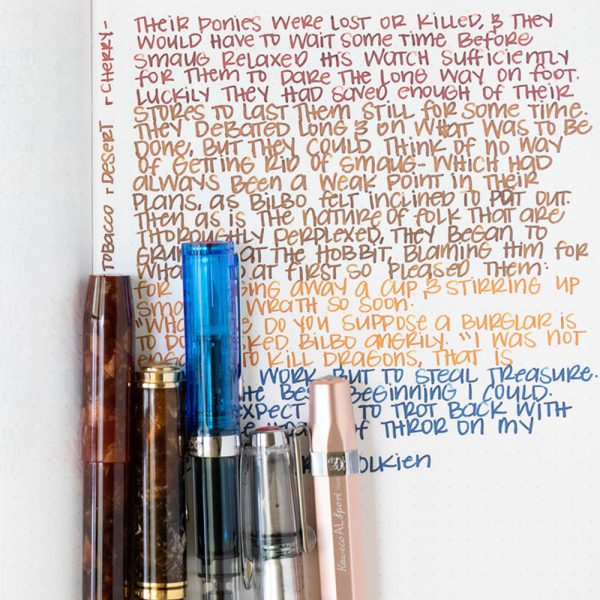 TheIR PONIES WERE LOST OR KILLED, & THEY
WOULD HAVE TO WAIT SOME TIME BEFORE
SMAUG RELAXED HIS WATCH SUFFICIENTLY
FOR THEM TO DARE THE LONG WAY ON FOOT.
LUCKILY THEY HAD SAVED ENOUGH OF THEIR
STORES TO LAST THEM STILL FOR SOME TIME.
THEY DEBATED LONG & ON WHAT WAS TO BE
DONE, BUT THEY COULD THINK OF NO WAY
OF GETTING RID OF SMAUG- WHICH HAD
ALWAYS BEEN A WEAK POINT IN THEIR
PLANS, AS BILBO FELT INCLINED TO POIT OUT.
THEN AS IS THE NATURE OF FOLK THAT ARE
THOROUGHLY PERPLEXED, THEY BEGAN TO
AT THE HOBBIT, BLAMING HIM FOR
AT FIRST SO PLEASED THEM:
FOR AWAY A CUP & STIRRING UP
WRATH SO SOON.
DO YOU SUPPOSE A BURGLAR IS
TO BILBO ANGRILY. "I WAS NOT
TO KILL DRAGONS, THAT IS
WORK, BUT TO STEAL TREASURE.
BEGINNING I COULD.
EXPECT TO TROT BACK WITH
OF THROR ON MY
TOBACCO DESERT CHERRY-
Kaweco AL Sport